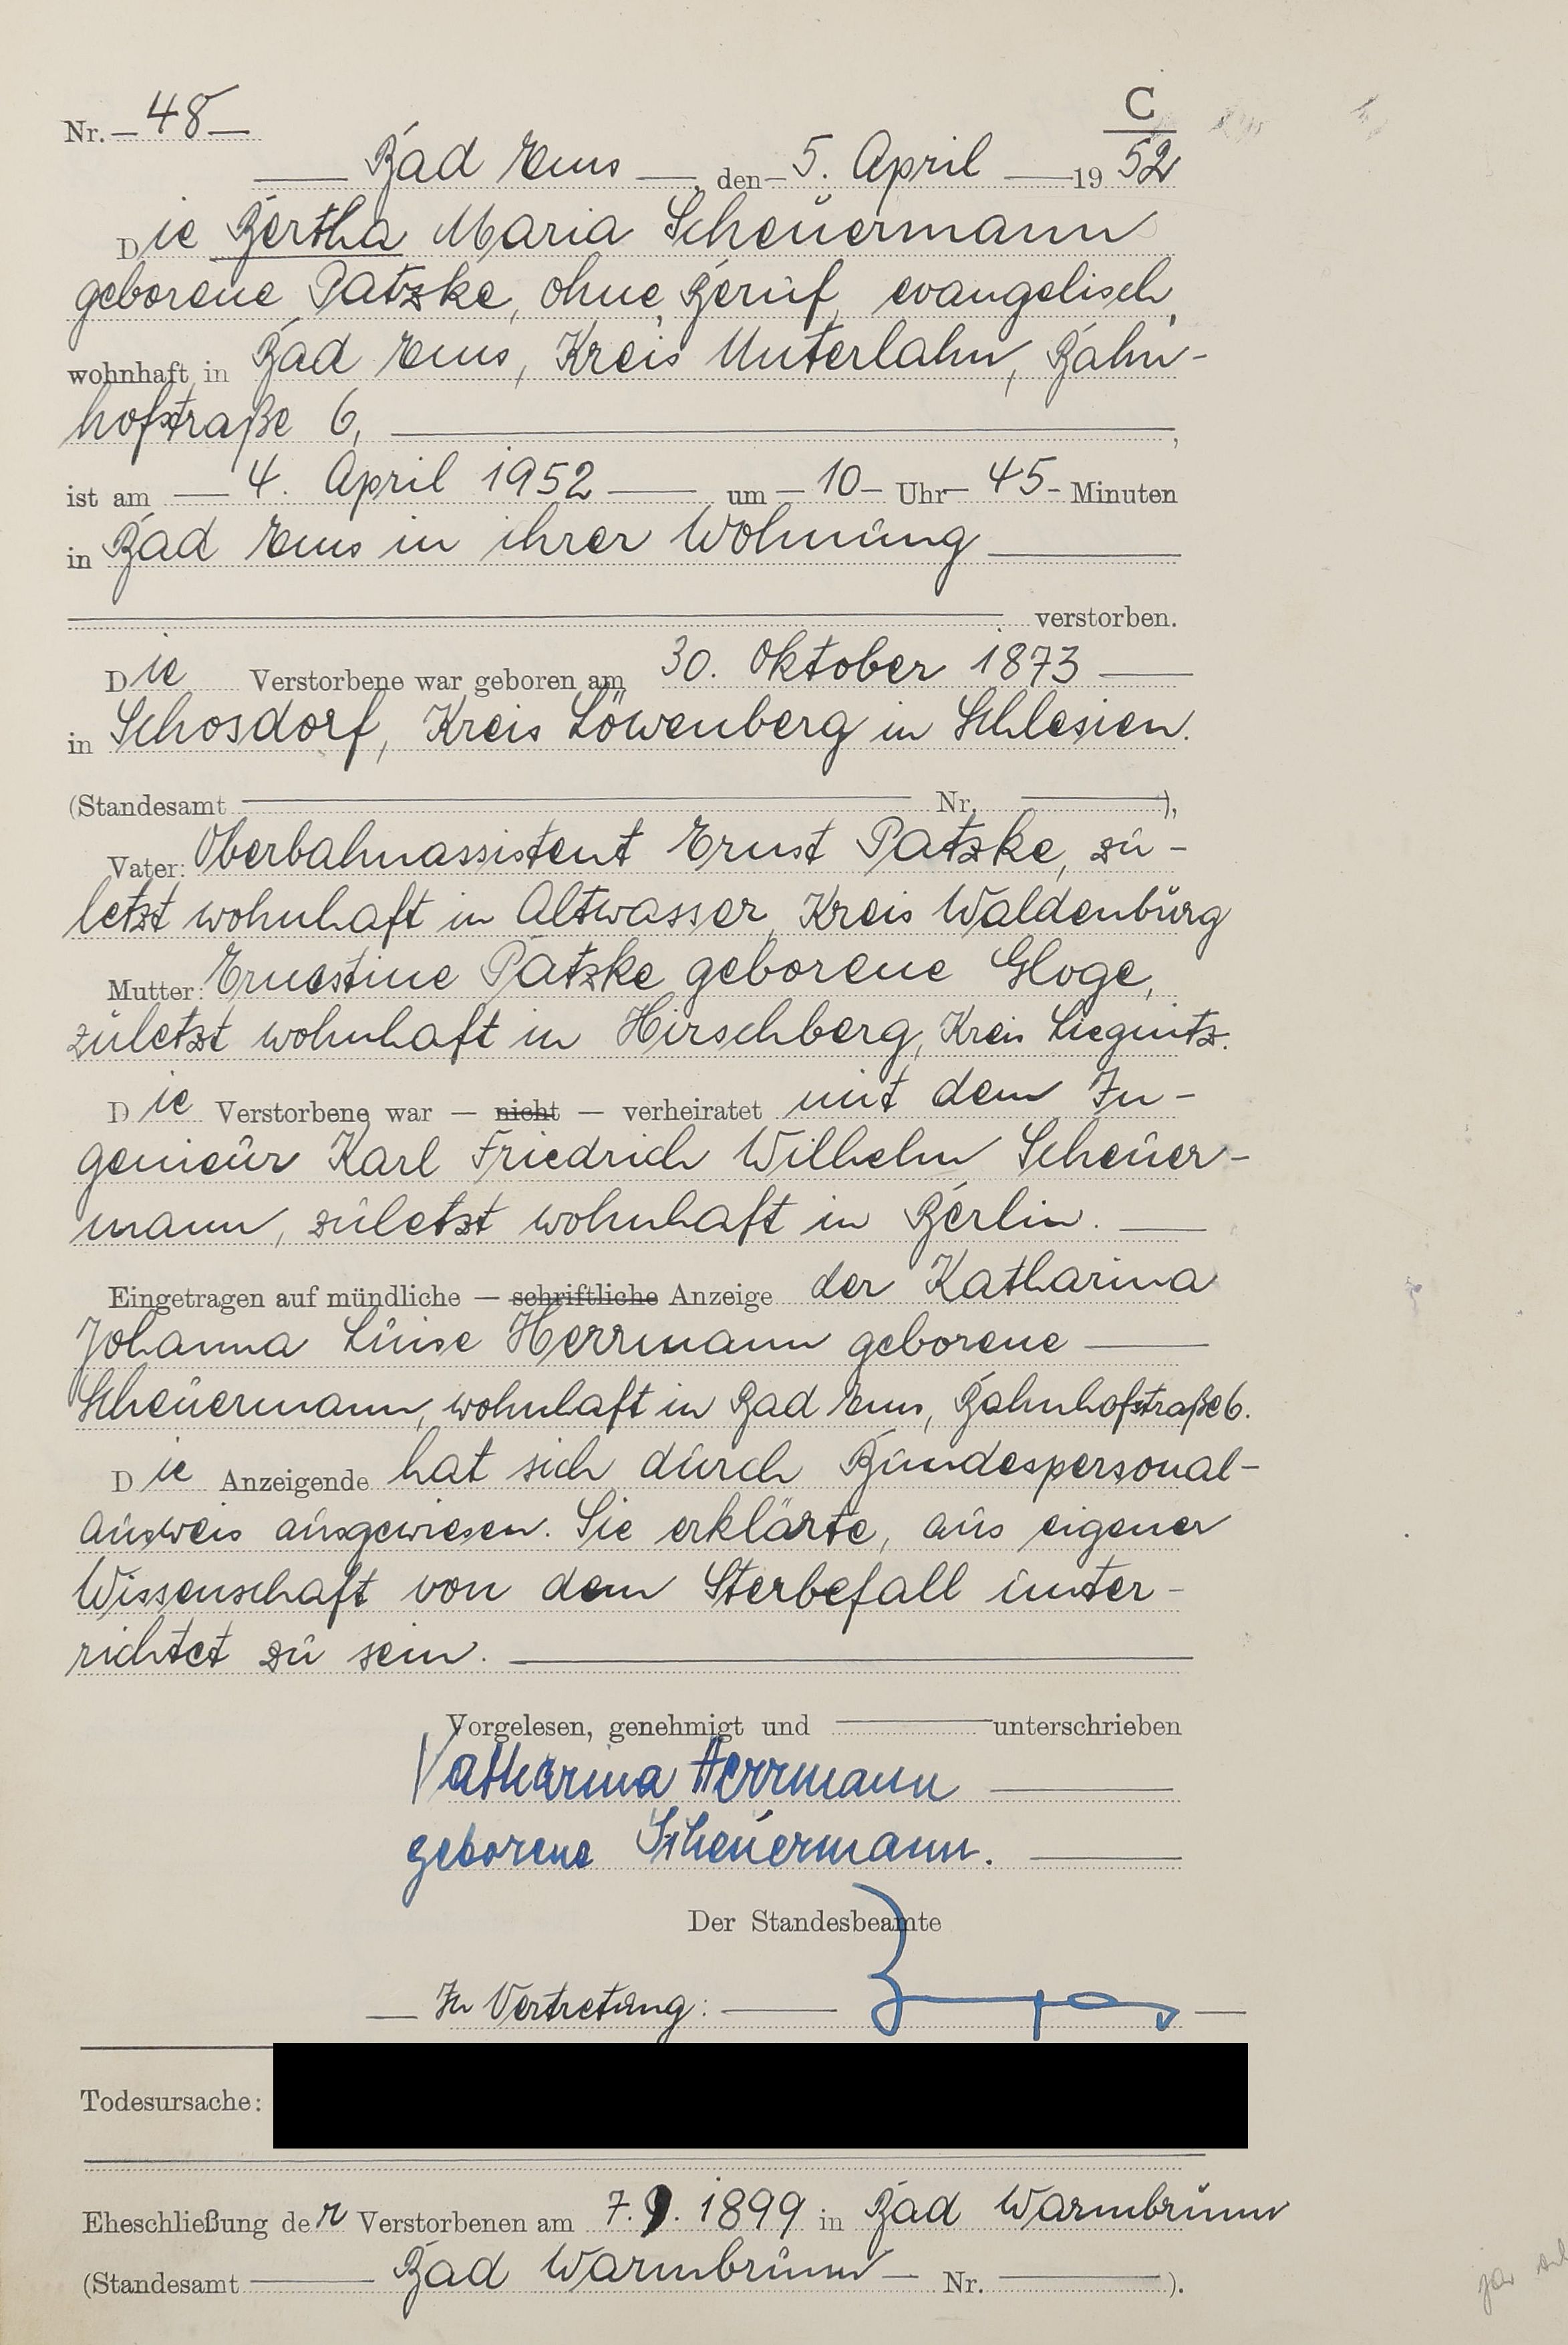 C
Nr. – 48 –
Bad Ems, den – 5. April 19 52
Die Bertha Maria Scheuermann
geborene Patzke, ohne Beruf, evangelisch,
wohnhaft in Bad Ems, Kreis Unterlahn, Bahn-
hofstraße 6,
ist am 4. April 1952 um – 10 – Uhr – 45 – Minuten
in Bad Ems in ihrer Wohnung
verstorben.
Die Verstorbene war geboren am 30. Oktober 1873
in Schosdorf, Kreis Löwenberg in Schlesien.
(Standesamt Nr. ),
Vater: Oberbahnassistent Ernst Patzke, zu-
letzt wohnhaft in Altwasser, Kreis Waldenburg
Mutter: Ernestine Patzke geborene Gloge,
zuletzt wohnhaft in Hirschberg, Kreis Liegnitz.
Die Verstorbene war – nicht – verheiratet mit dem In-
genieur Karl Friedrich Wilhelm Scheuer-
mann, zuletzt wohnhaft in Berlin.
Eingetragen auf mündliche – schriftliche Anzeige der Katharina
Johanna Luise Herrmann geborene
Scheuermann, wohnhaft in Bad Ems, Bahnhofstraße 6.
Die Anzeigende hat sich durch Bundespersonal-
ausweis ausgewiesen. Sie erklärte, aus eigener
Wissenschaft von dem Sterbefall unter-
richtet zu sein.
Vorgelesen, genehmigt und unterschrieben
Katharina Herrmann
geborene Scheuermann.
Der Standesbeamte
In Vertretung:
Todesursache:
Eheschließung der Verstorbenen am 7.9. 1899 in Bad Warmbrunn
(Standesamt Bad Warmbrunn – Nr. ).